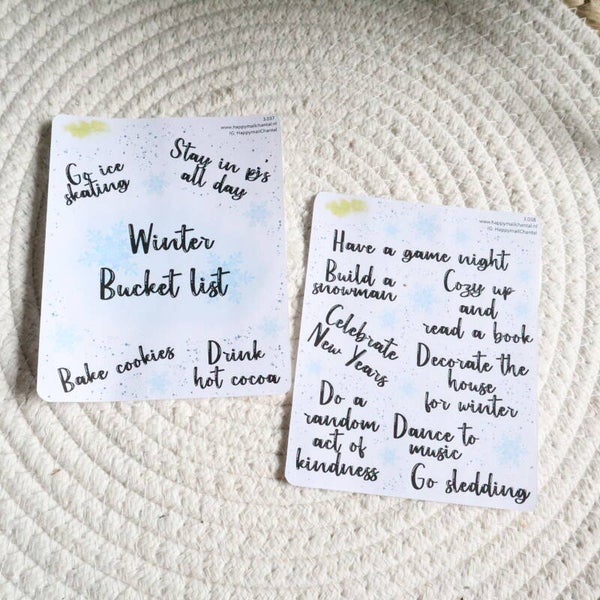 3.037
www.happymailchantal.nl
IG: HappymailChantal
Go ice
skating
Stay in pj's
all day
Winter
Bucket list
Bake cookies
Drink
hot cocoa
3.038
www.happymailchantal.nl
IG: HappymailChantal
Have a game night
Build a
snowman
Cozy up
and
read a book
Celebrate
New Years
Decorate the
house
for winter
Do a
random
act of
kindness
Dance to
music
Go sledding